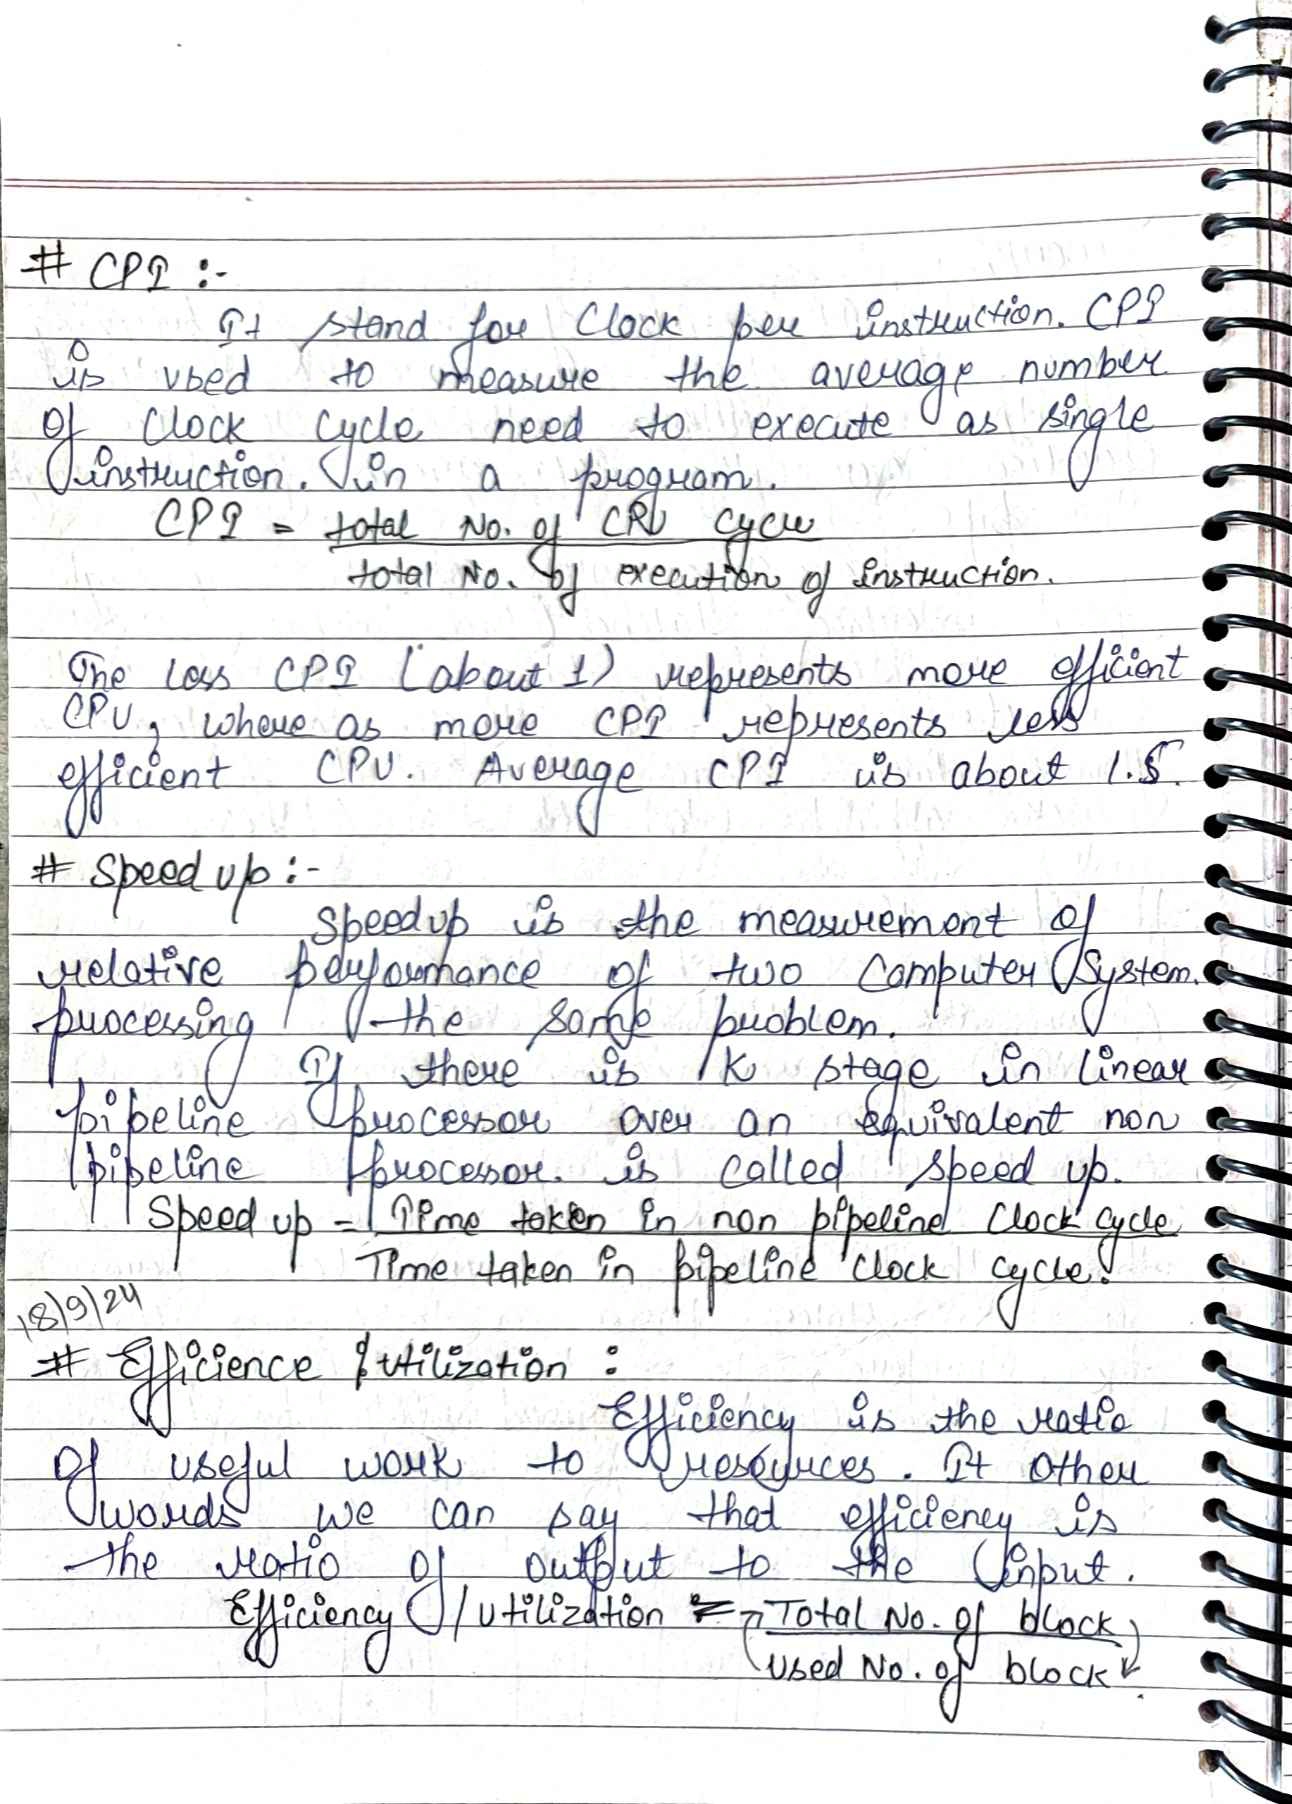 # CPI :-
It stand for Clock per instruction. CPI
is used to measure the average number
of Clock Cycle need to execute as single
instruction. in a program.
CPI = total No. of CPU Cycle
total No. of execution of instruction.
The less CPI (about 1) represents more efficient
CPU, where as more CPI represents less
efficient CPU. Average CPI is about 1.5.
# Speed up :-
Speedup is the measurement of
relative performance of two Computer System.
processing the same problem.
If there is K stage in linear
pipeline processor over an equivalent non
pipeline processor. is called speed up.
Speed up = Time taken in non pipeline Clock cycle
Time taken in pipeline clock cycle.
18/9/24
# Efficience & utilization :
Efficiency is the ratio
of useful work to resources. It other
words we can say that efficiency is
the ratio of output to the input.
Efficiency / utilization = Total No. of block
used No. of block